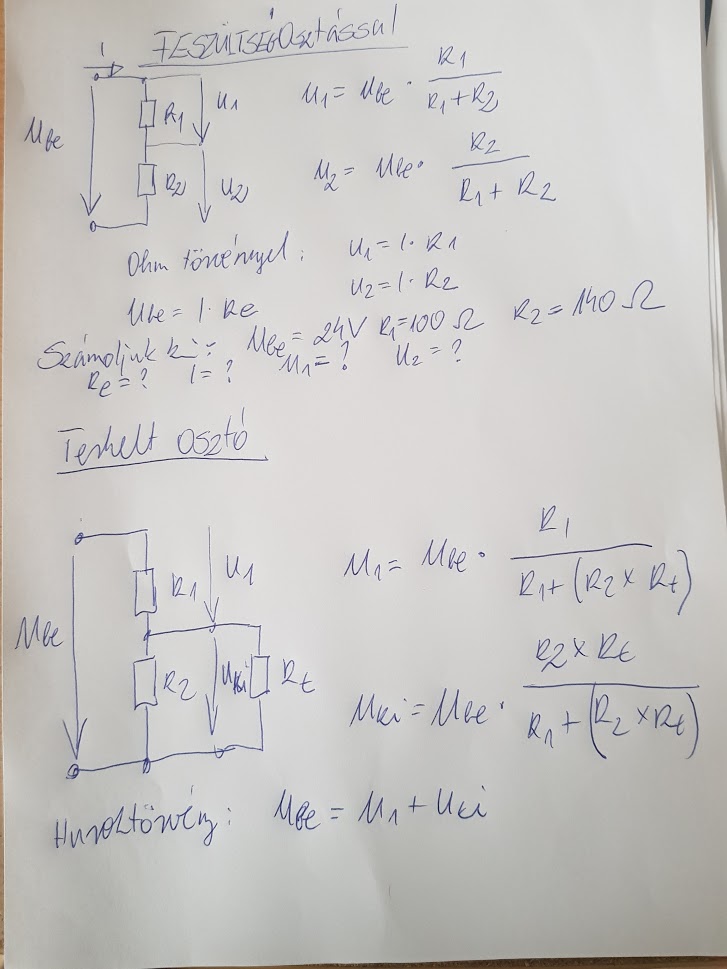 FESZÜLTSÉGOsztással
I
Ube
R1
U1
U1 = Ube · R1 / R1+R2
R2
U2
U2 = Ube · R2 / R1 + R2
Ohm törvényel:
U1 = I · R1
U2 = I · R2
Ube = I · Re
Számoljuk ki: Ube = 24V R1=100 Ω R2 = 140 Ω
Re = ? I = ? U1 = ? U2 = ?
Terhelt osztó
Ube
R1
U1
U1 = Ube · R1 / R1+(R2 x Rt)
R2
Uki
Rt
Uki = Ube · R2 x Rt / R1 + (R2 x Rt)
Huroktörvény: Ube = U1 + Uki